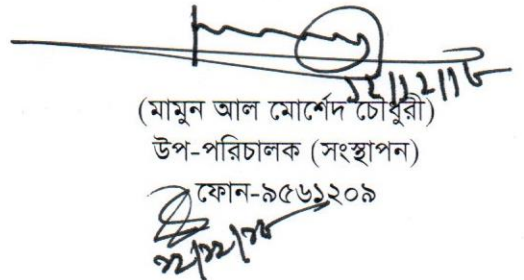 ১২/১২/১৮
(মামুন আল মোর্শেদ চৌধুরী)
উপ-পরিচালক (সংস্থাপন)
ফোন-৯৫৬১২০৯